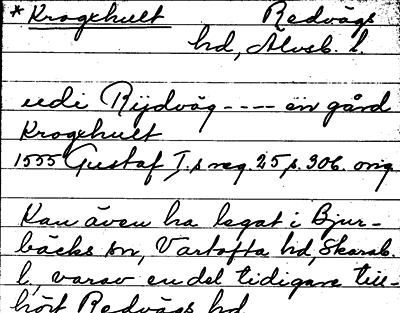 * Krogxhult Redvägs
hd, Älvsb. l.
uedi Rijdväg ---- en gård
Krogxhult
1555 Gustaf I.s reg. 25 s. 306. orig
Kan även ha legat i Bjur-
bäcks sn, Vartofta hd, Skarab.
l., varav en del tidigare till-
hört Redvägs hd.